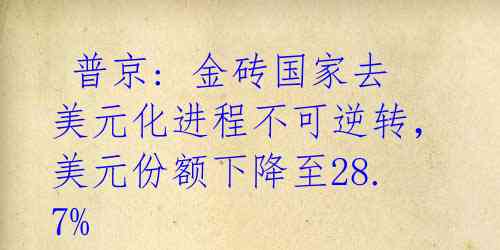 普京: 金砖国家去
美元化进程不可逆转,
美元份额下降至28.
7%